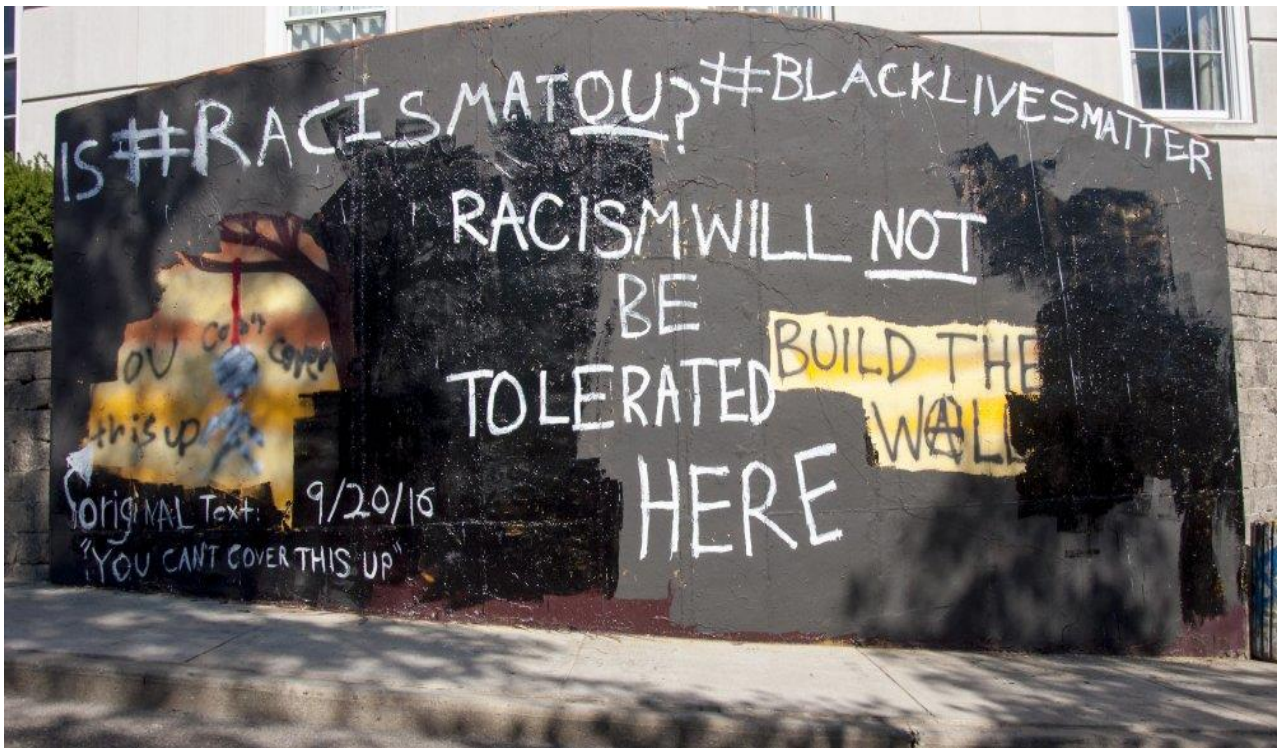 IS #RACISMATOU? #BLACKLIVESMATTER
RACISM WILL NOT
BE
TOLERATED
HERE
BUILD THE
WALL
OU CAN'T COVER
this up
ORIGINAL Text: 9/20/16
"YOU CANT COVER THIS UP"